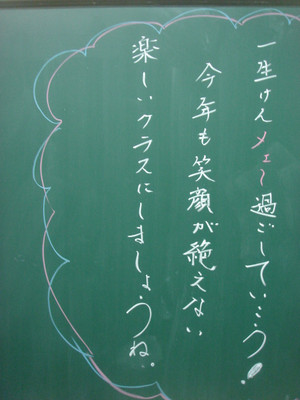 一生けんメェ〜過ごしていこう!
今年も笑顔が絶えない
楽しいクラスにしましょうね。